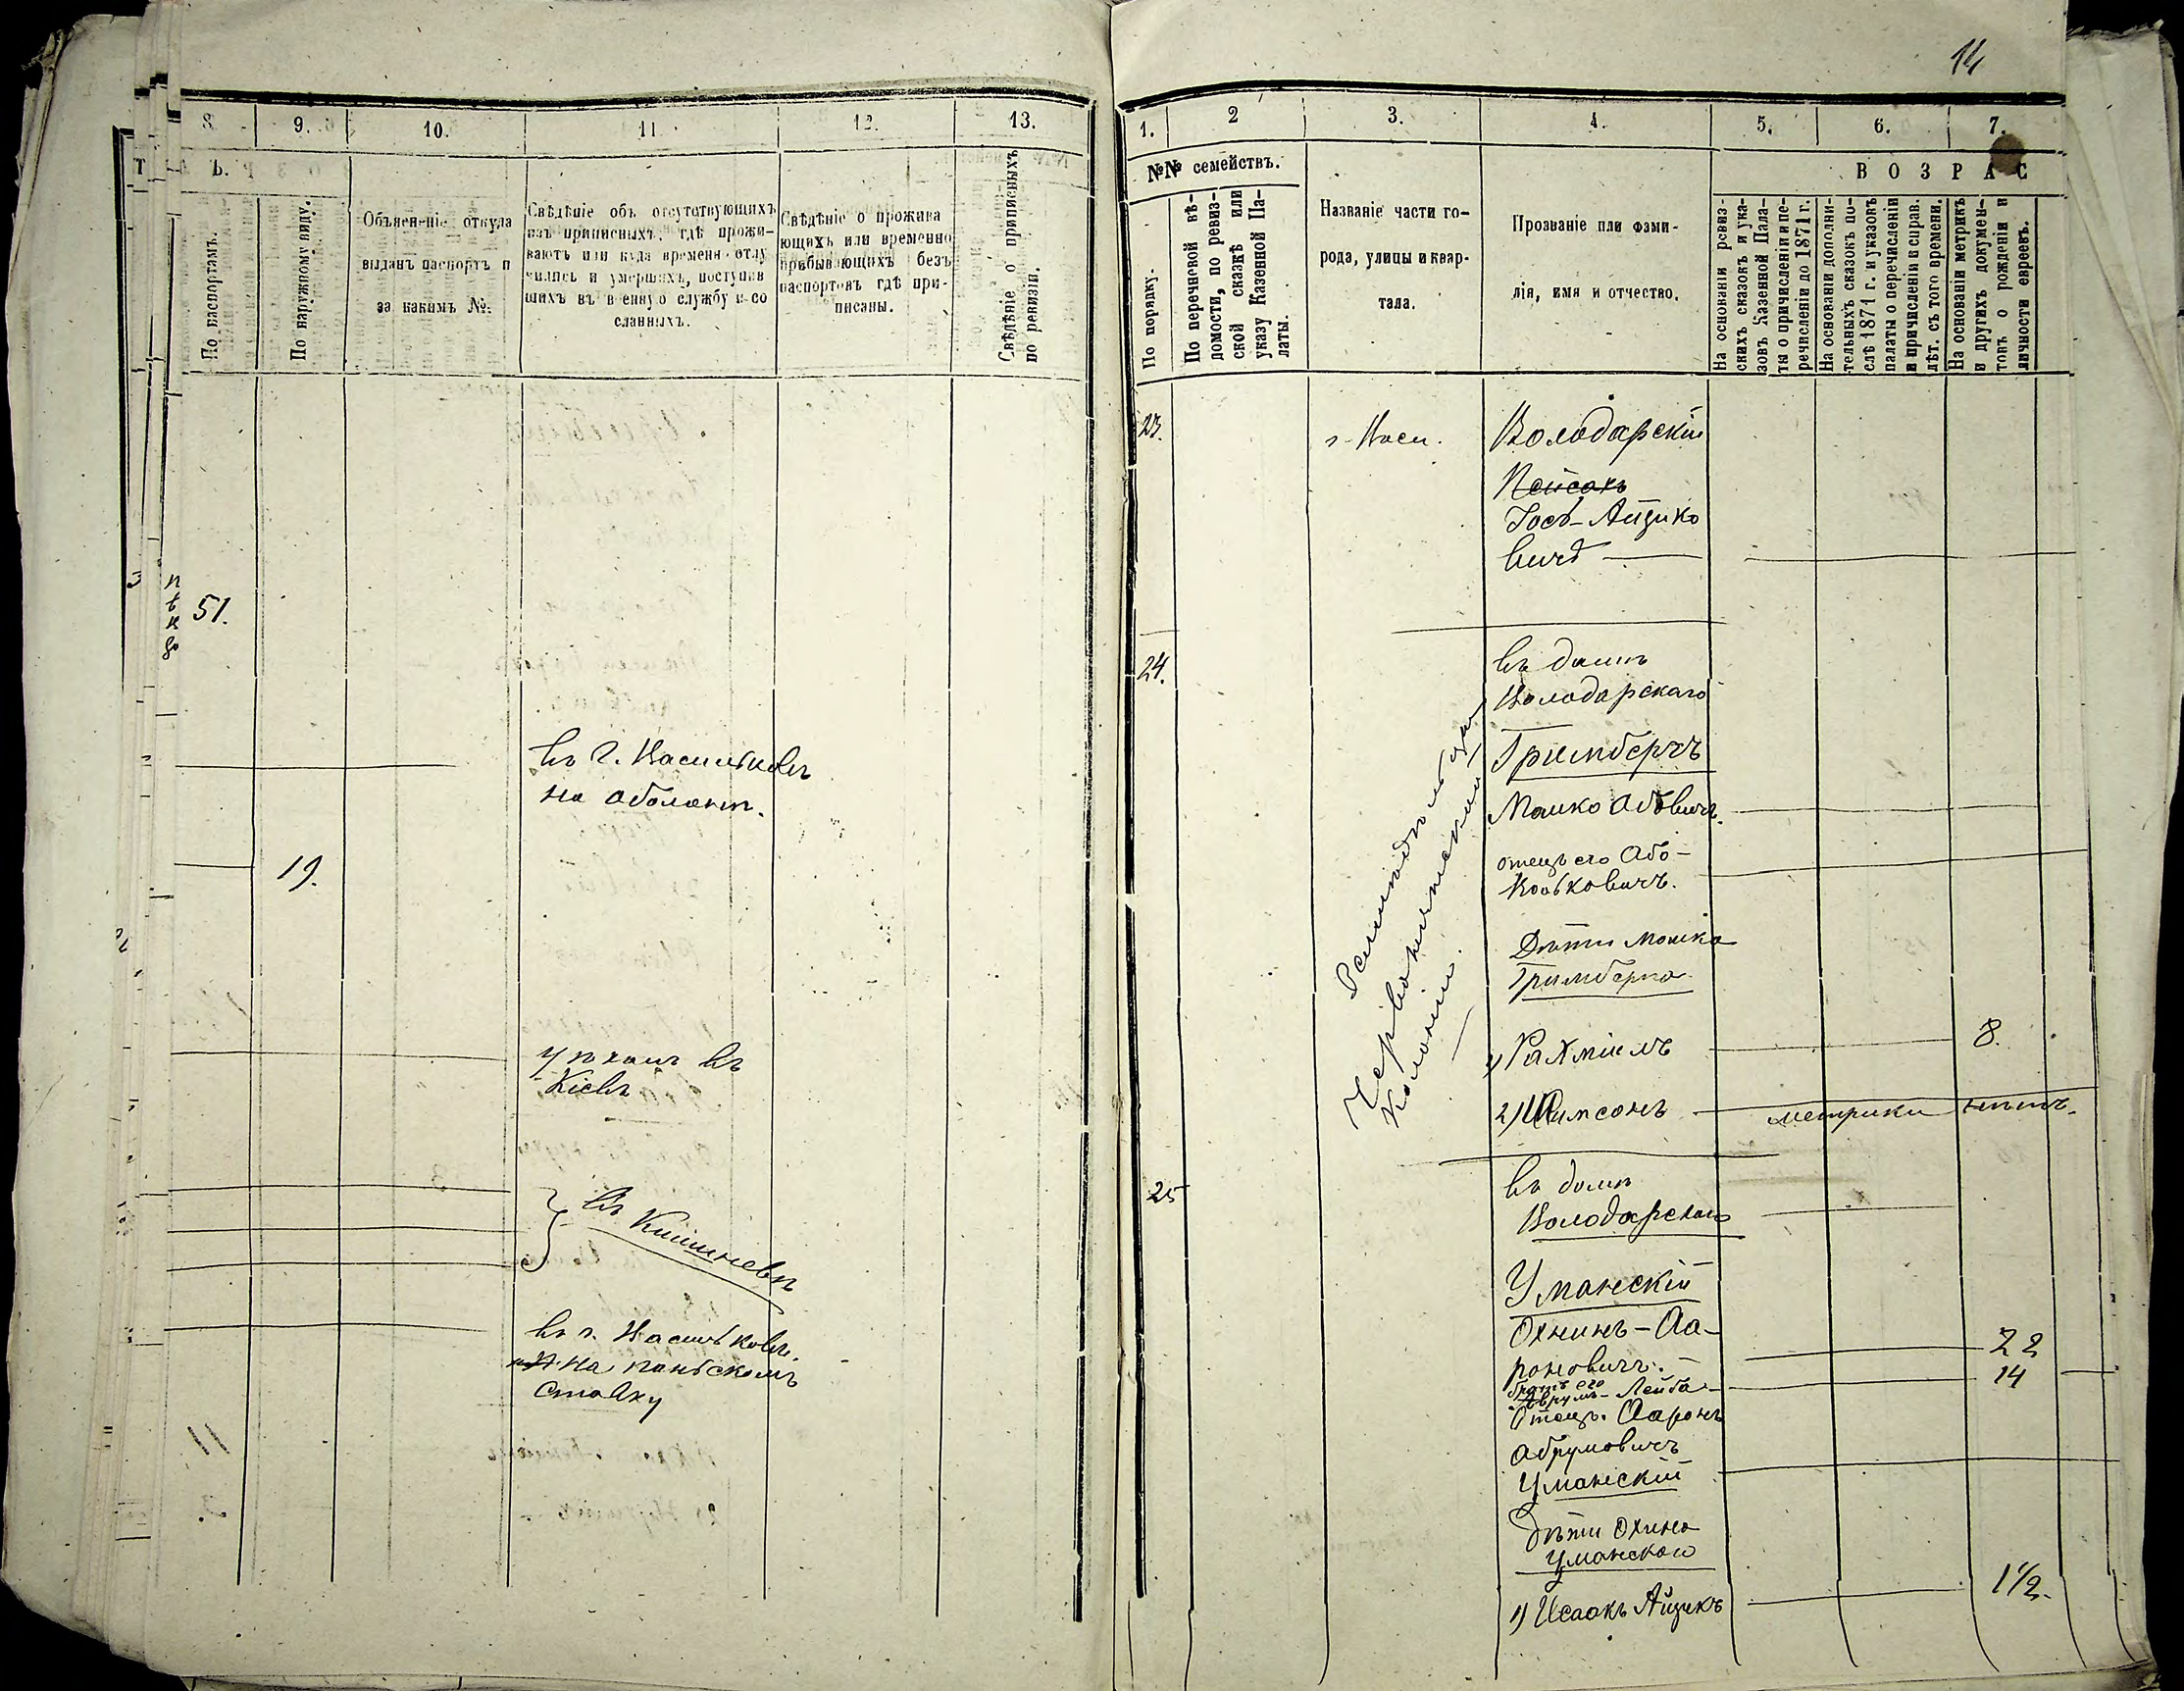 14
8. 9. 10. 11. 12. 13.
Т Ъ.
По паспортамъ.
По наружному виду.
Объясненіе откуда
выданъ паспортъ и
за какимъ №.
Свѣдѣніе объ отсутствующихъ
изъ приписныхъ, гдѣ прожи-
ваютъ или куда времен. отлу
чились и умершихъ, поступив
шихъ въ военную службу и со
сланныхъ.
Свѣдѣніе о прожива
ющихъ или временно
пребывающихъ безъ
паспортовъ гдѣ при-
писаны.
Свѣдѣніе о приписныхъ
по ревизіи.
51.
въ г. Васильковѣ
на оболони.
19.
уѣхалъ въ
Кіевъ
въ Кишиневѣ
въ г. Васильковѣ
на паньскомъ
ставку
1. 2 3. 4. 5. 6. 7.
№№ семействъ.
В О З Р А С
По порядку.
По перечневой вѣ-
домости, по ревиз-
ской сказкѣ или
указу Казенной Па-
латы.
Названіе части го-
рода, улицы и квар-
тала.
Прозваніе или фами-
лія, имя и отчество.
На основаніи ревиз-
скихъ сказокъ и ука-
зовъ Казенной Пала-
ты о причисленіи и пе-
речисленіи до 1871 г.
На основаніи дополни-
тельныхъ сказокъ по-
слѣ 1871 г. и указовъ
палаты о перечисленіи
и причисленіи и справ.
лѣт. съ того времени.
На основаніи метрикъ
и другихъ докумен-
товъ о рожденіи и
личности евреевъ.
23. г. Васи. Володарскій
Пейсахъ
Іось-Айзико
вичъ
24. въ домѣ
Володарскаго
Гримбергъ
Мошко Абовичъ.
отецъ его Або-
Волковичъ.
Дѣти Мошка
Гримберга
1) Рахміилъ 8.
2) Шимсонъ метрики нѣтъ.
колоніи.
25 въ домѣ
Володарскаго
Уманскій
Охнинъ-Аа-
роновичъ. 22
братъ его
Аврумъ-Лейба 14
Отецъ. Ааронъ
Абрумовичъ
Уманскій
Дѣти Охина
Уманскаго
1) Исаакъ Айзикъ 1 1/2.